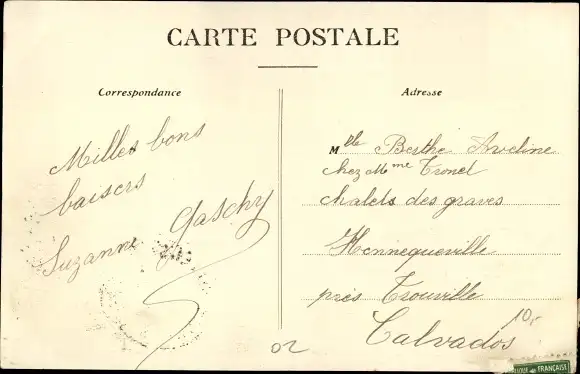 CARTE POSTALE
Correspondance
Milles bons
baisers
Suzanne Gaschy
Adresse
Mlle Berthe Aveline
chez Mme Tronel
chalets des graves
Hennequeville
près Trouville
Calvados
10,-
02
FRANÇAISE